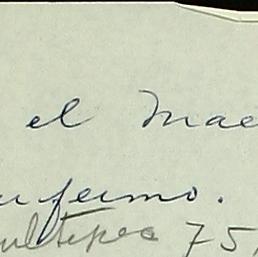 el Mae
nfermo.
ultepec 75